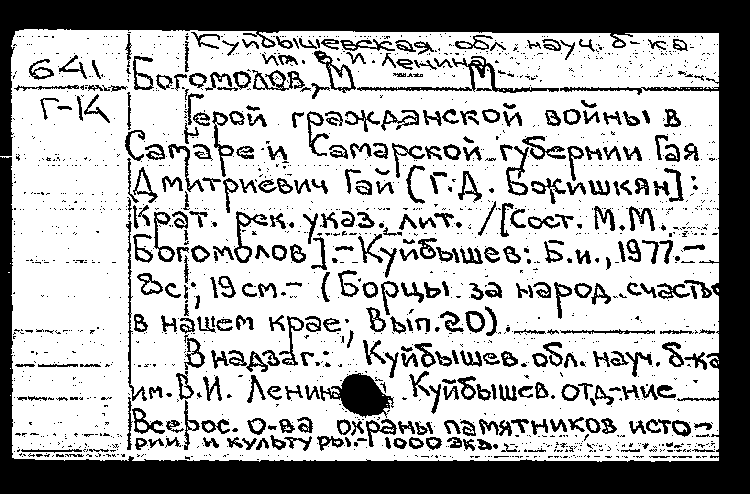 Куйбышевская обл. науч. б-ка
им. В. И. Ленина
641 Богомолов, М М
Г-14 Герой гражданской войны в
Самаре и Самарской губернии Гая
Дмитриевич Гай (Г. Д. Бжишкян]:
Крат. рек. указ. лит. /[Сост. М.М.
Богомолов].- Куйбышев: Б.и., 1977.-
8с.; 19 см.- (Борцы за народ. счастье
в нашем крае; Вып.20).
В надзаг.: Куйбышев. обл. науч. б-ка
им. В.И. Ленина Куйбышев. отд-ние
Всерос. о-ва охраны памятников исто-
рии и культуры.- 1000 экз.